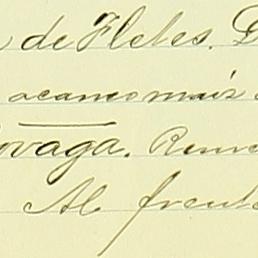 de Fletes.
acanco maiz
ovaga. Rem
Al frent